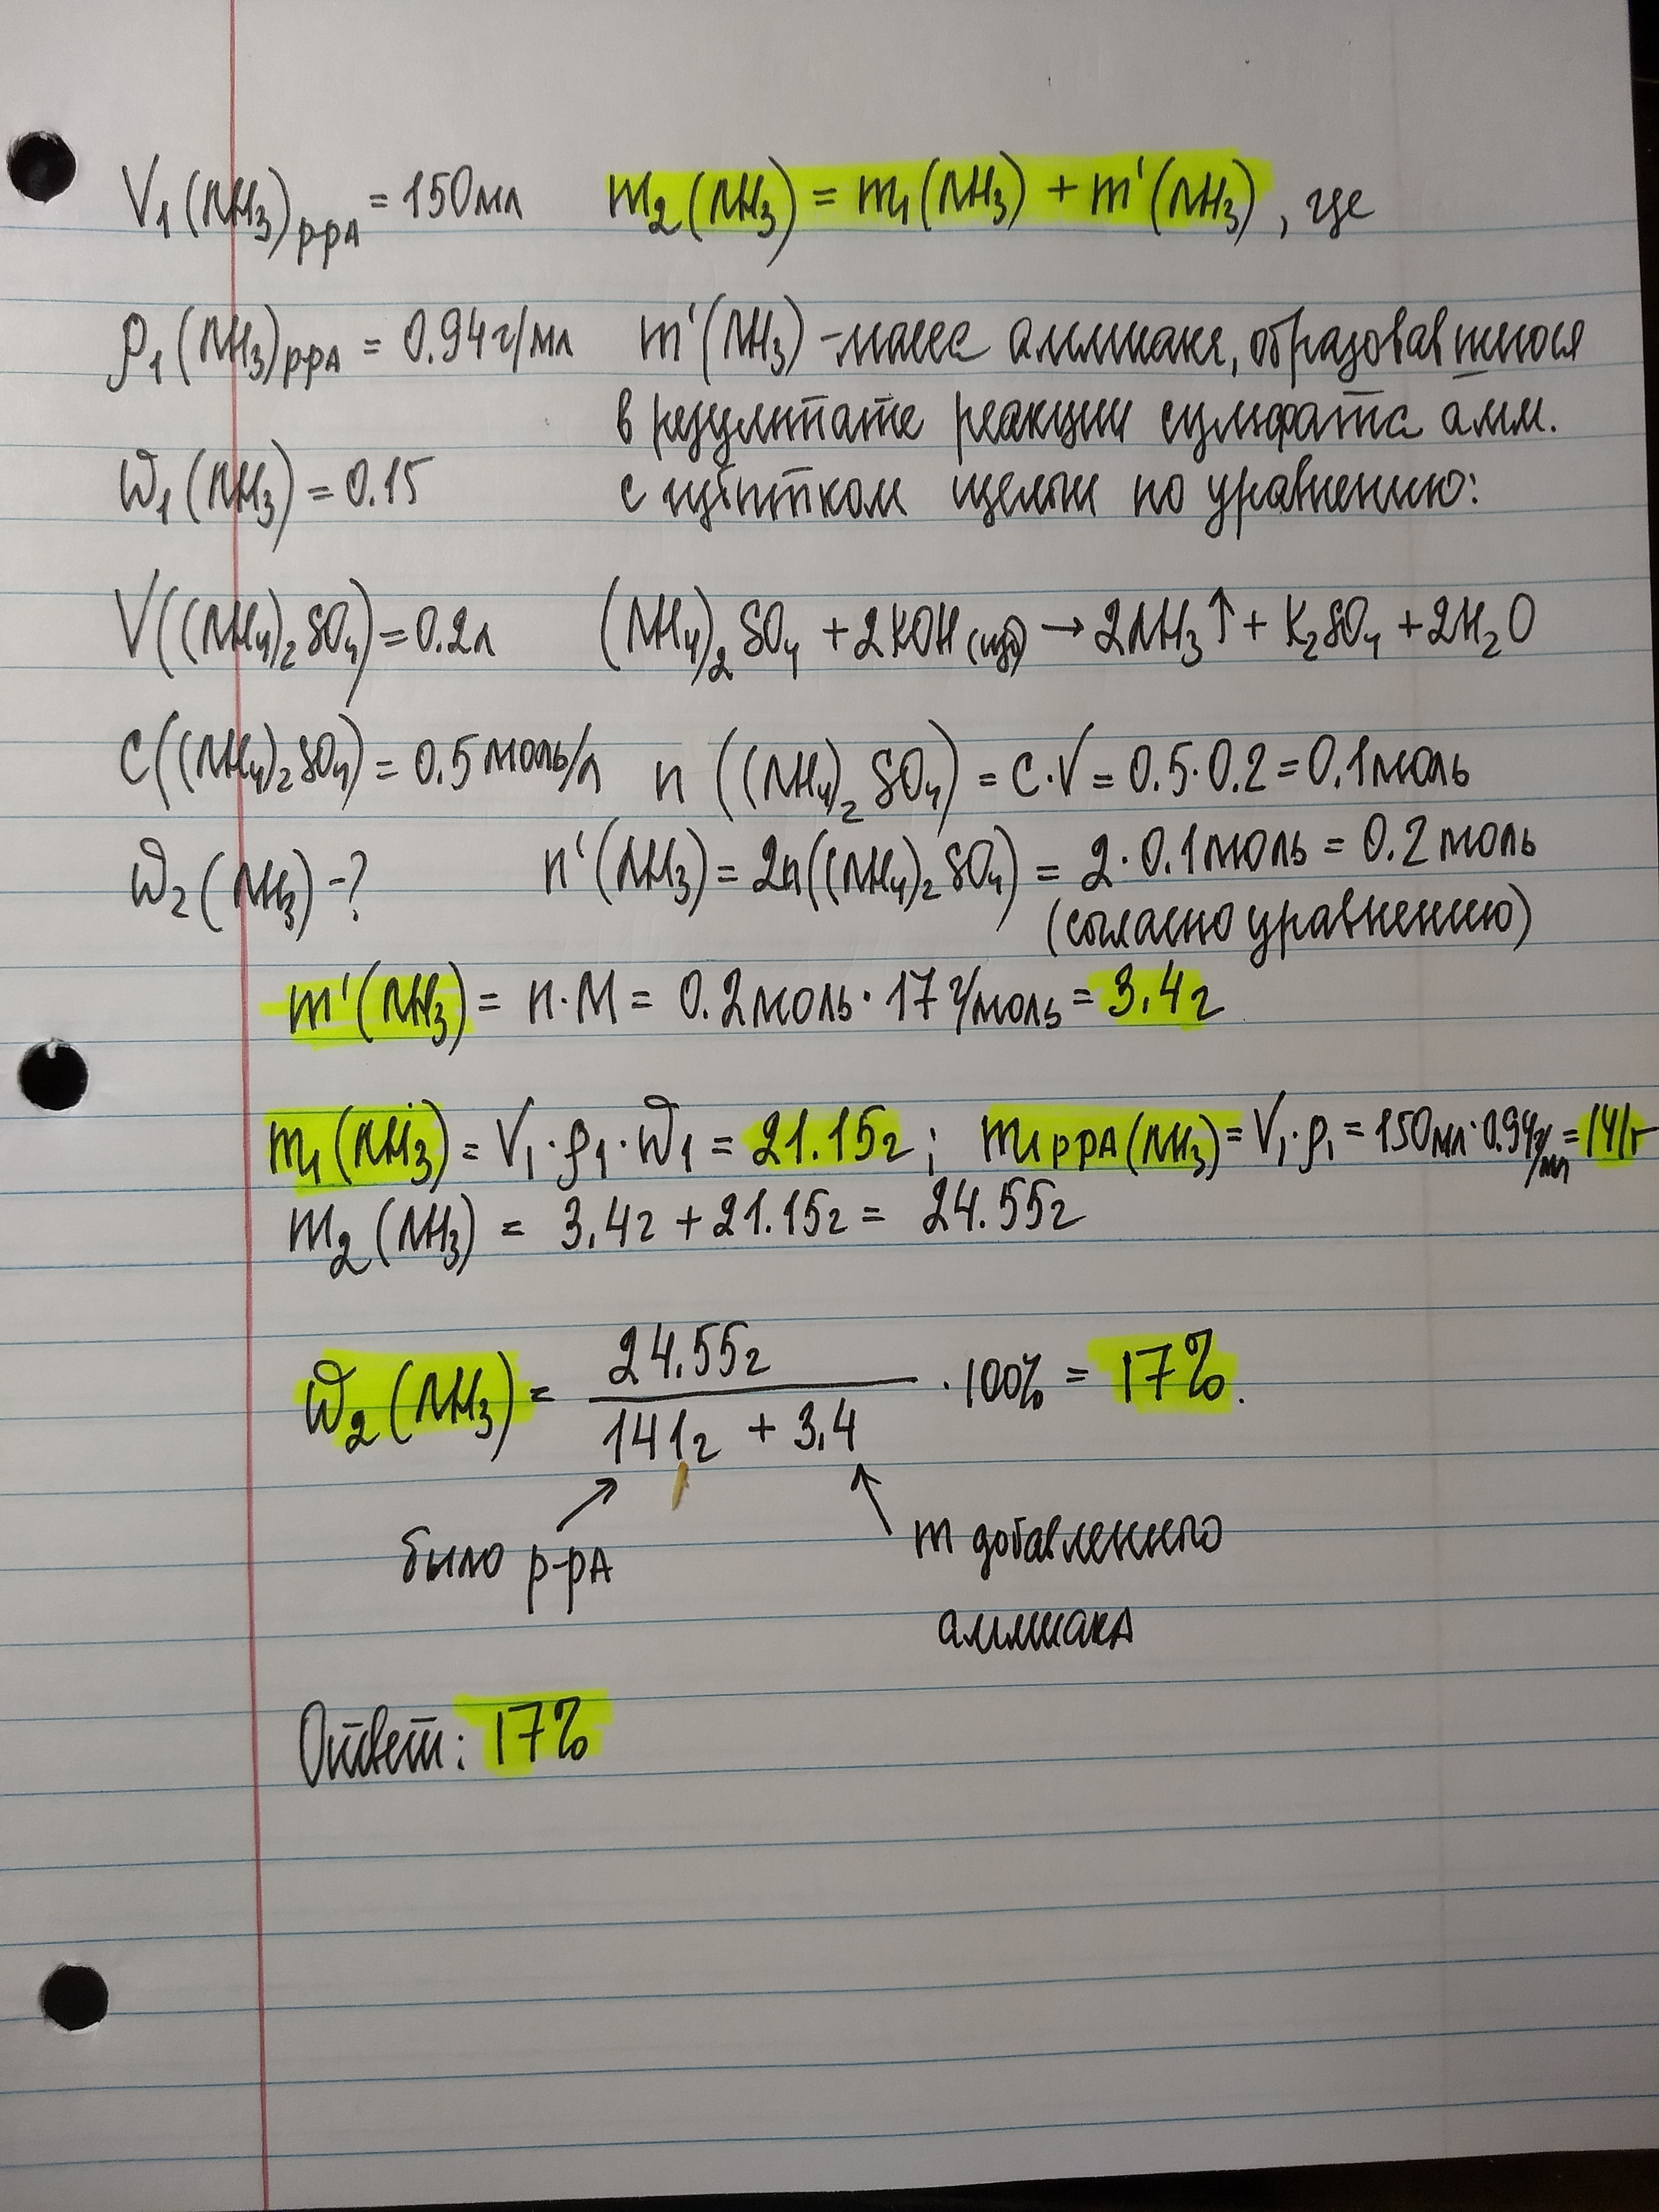 V₁(NH₃)р-рА = 150мл m₂(NH₃) = m₁(NH₃) + m'(NH₃), где
ρ₁(NH₃)р-рА = 0.94г/мл m'(NH₃) - масса аммиака, образовавшегося
в результате реакции сульфата амм.
ω₁(NH₃) = 0.15 с избытком щелочи по уравнению:
V((NH₄)₂SO₄) = 0.2л (NH₄)₂SO₄ + 2KOH(изб) → 2NH₃↑ + K₂SO₄ + 2H₂O
C((NH₄)₂SO₄) = 0.5 моль/л n((NH₄)₂SO₄) = C·V = 0.5·0.2 = 0.1моль
ω₂(NH₃) - ? n'(NH₃) = 2n((NH₄)₂SO₄) = 2·0.1моль = 0.2 моль
(согласно уравнению)
m'(NH₃) = n·M = 0.2моль·17г/моль = 3.4г
m₁(NH₃) = V₁·ρ₁·ω₁ = 21.15г; m₁ р-рА(NH₃) = V₁·ρ₁ = 150мл·0.94г/мл = 141г
m₂(NH₃) = 3.4г + 21.15г = 24.55г
24.55г
ω₂(NH₃) = ———— ·100% = 17%.
141г + 3,4
было р-рА m добавленного
аммиака
Ответ: 17%